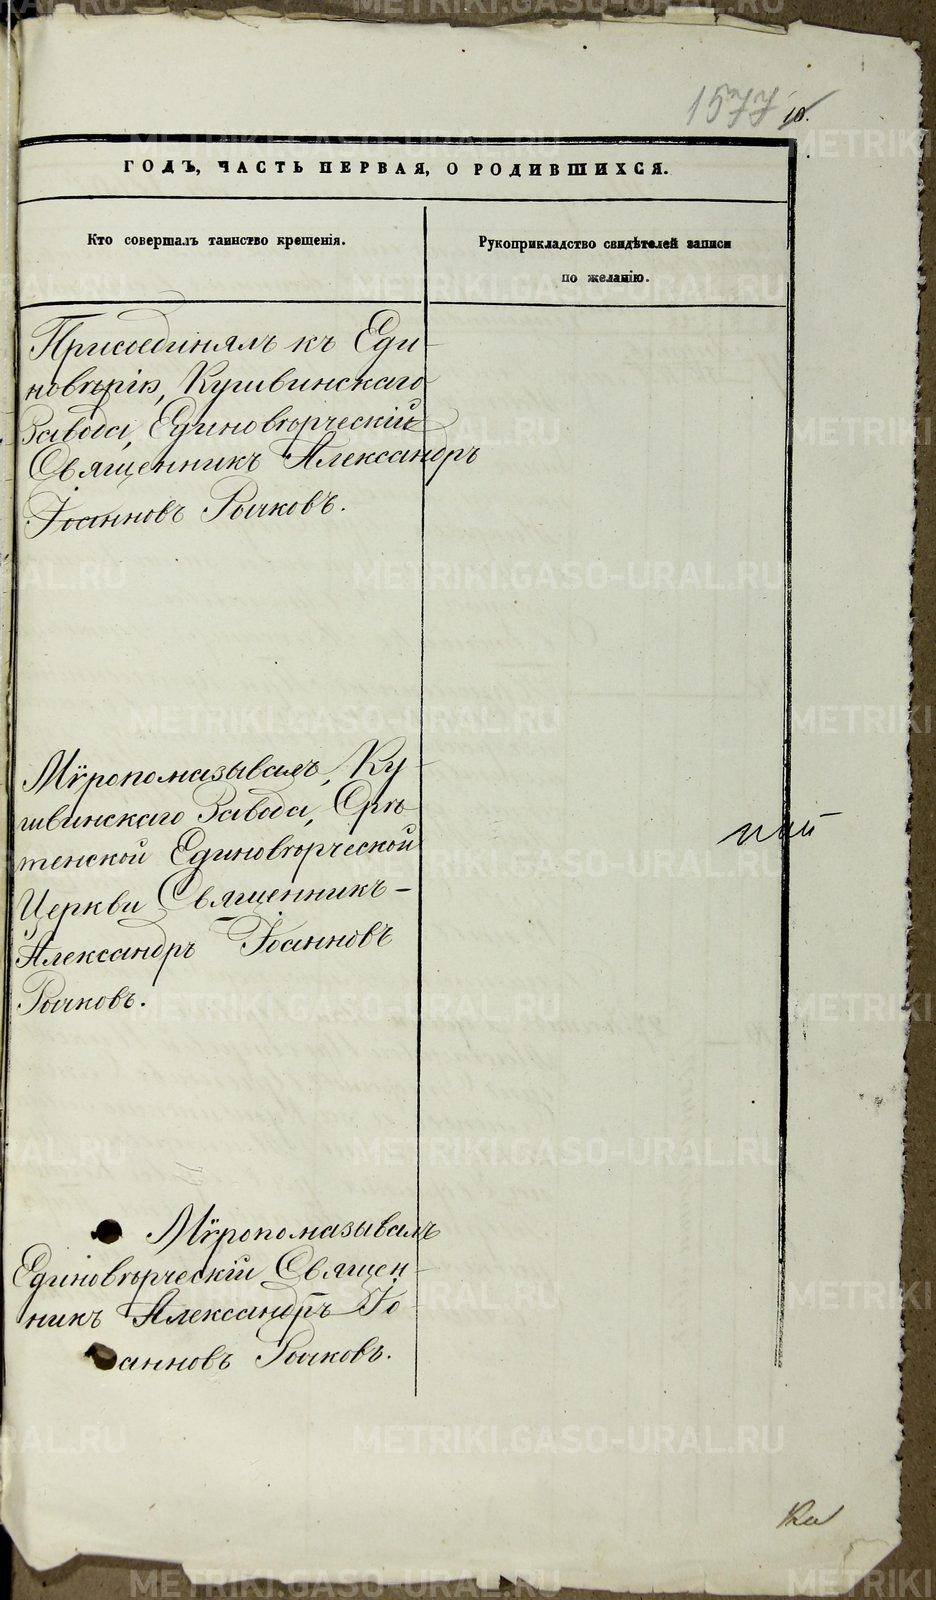 1577
ГОДЪ, ЧАСТЬ ПЕРВАЯ, О РОДИВШИХСЯ.
Кто совершалъ таинство крещенія.
Рукоприкладство свидѣтелей записи
по желанію.
Присоединялъ къ Еди-
новѣрію, Кушвинскаго
Завода, Единовѣрческій
Священникъ Александръ
Іоанновъ Рычковъ.
Мѵропомазывалъ, Ку-
швинскаго Завода, Срѣ-
тенской Единовѣрческой
Церкви Священникъ –
Александръ Іоанновъ
Рычковъ.
Мѵропомазывалъ
Единовѣрческій Священ-
никъ Александръ Іо-
анновъ Рычковъ.
METRIKI.GASO-URAL.RU